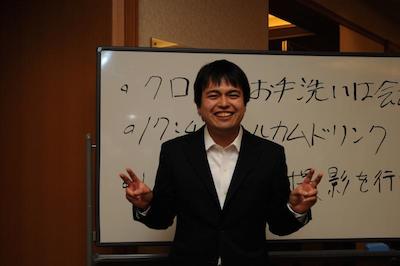 ・クロ お手洗いは会
・17:
ルカムドリンク
影を行